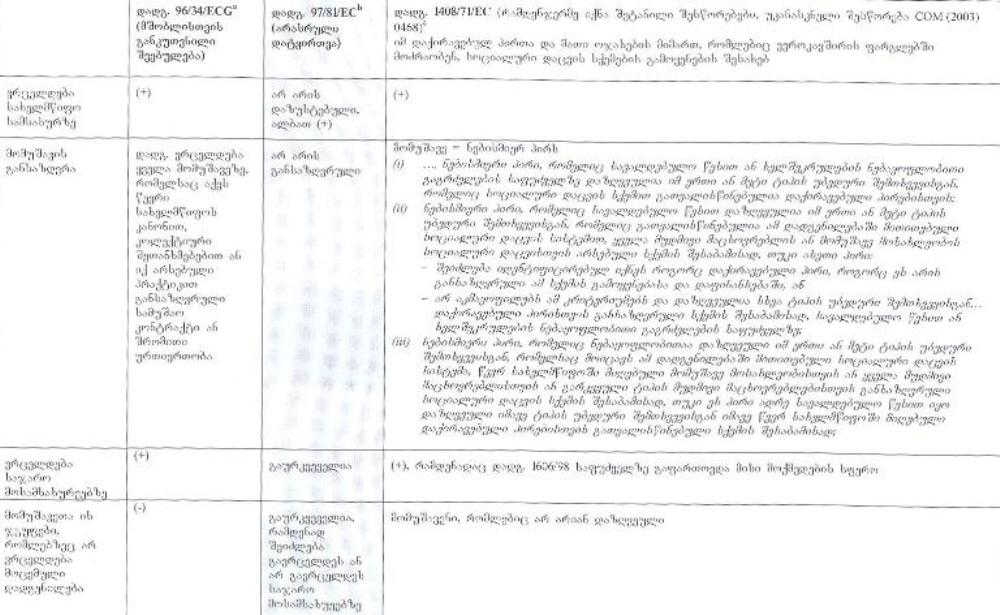 დადგ. 96/34/ECG^a
(მშობლისთვის
განკუთვნილი
შვებულება)
დადგ. 97/81/EC^b
(არასრული
დატვირთვა)
დადგ. 1408/71/EC (რამდენჯერმე იქნა შეტანილი შესწორებები, უკანასკნელი შესწორება COM (2003)
0468)^c
იმ დაქირავებულ პირთა და მათი ოჯახების მიმართ, რომლებიც ევროკავშირის ფარგლებში
მოძრაობენ, სოციალური დაცვის სქემების გამოყენების შესახებ
ვრცელდება
სახელმწიფო
სამსახურზე
(+)
არ არის
დაზუსტებული,
ალბათ (+)
(+)
მომუშავის
განსაზღვრა
დადგ. ვრცელდება
ყველა მომუშავეზე,
რომელსაც აქვს
წევრი
სახელმწიფოს
კანონით,
კოლექტიური
შეთანხმებებით ან
იქ არსებული
პრაქტიკით
განსაზღვრული
სამუშაო
კონტრაქტი ან
შრომითი
ურთიერთობა
არ არის
განსაზღვრული
მომუშავე = ნებისმიერ პირს
(i) .... ნებისმიერი პირი, რომელიც სავალდებულო წესით ან ხელშეკრულების ნებაყოფლობითი
გაგრძელების საფუძველზე დაზღვეულია იმ ერთი ან მეტი ტიპის უბედური შემთხვევისგან,
რომელიც სოციალური დაცვის სქემით გათვალისწინებულია დაქირავებული პირებისთვის;
(ii) ნებისმიერი პირი, რომელიც სავალდებულო წესით დაზღვეულია იმ ერთი ან მეტი ტიპის
უბედური შემთხვევისგან, რომელიც გათვალისწინებულია ამ დადგენილებაში მითითებული
სოციალური დაცვის სისტემით, ყველა მუდმივი მაცხოვრებლის ან მომუშავე მოსახლეობის
სოციალური დაცვისთვის არსებული სქემის შესაბამისად, თუკი ასეთი პირი:
– შეიძლება იდენტიფიცირებულ იქნეს როგორც დაქირავებული პირი, როგორც ეს არის
განსაზღვრული ამ სქემის გამოყენებასა და დაფინანსებაში, ან
– არ აკმაყოფილებს ამ კრიტერიუმებს და დაზღვეულია სხვა ტიპის უბედური შემთხვევისგან...
დაქირავებული პირისთვის განსაზღვრული სქემის შესაბამისად, სავალდებულო წესით ან
ხელშეკრულების ნებაყოფლობითი გაგრძელების საფუძველზე;
(iii) ნებისმიერი პირი, რომელიც ნებაყოფლობითაა დაზღვეული იმ ერთი ან მეტი ტიპის უბედური
შემთხვევისგან, რომელსაც მოიცავს ამ დადგენილებაში მითითებული სოციალური დაცვის
სისტემა, წევრ სახელმწიფოში მიღებული მომუშავე მოსახლეობისთვის ან ყველა მუდმივი
მაცხოვრებლისთვის ან გარკვეული ტიპის მუდმივი მაცხოვრებლებისთვის განსაზღვრული
სოციალური დაცვის სქემის შესაბამისად, თუკი ეს პირი ადრე სავალდებულო წესით იყო
დაზღვეული იმავე ტიპის უბედური შემთხვევისგან იმავე წევრ სახელმწიფოში მიღებული
დაქირავებული პირებისთვის გათვალისწინებული სქემის შესაბამისად;
ვრცელდება
საჯარო
მოსამსახურეებზე
(+)
გაურკვეველია
(+), რამდენადაც დადგ. 1606/98 საფუძველზე გაფართოვდა მისი მოქმედების სფერო
მომუშავეთა ის
ჯგუფები,
რომლებზეც არ
ვრცელდება
მოცემული
დადგენილება
(-)
გაურკვეველია,
რამდენად
შეიძლება
გავრცელდეს ან
არ გავრცელდეს
საჯარო
მოსამსახუებზე
მომუშავენი, რომლებიც არ არიან დაზღვეული